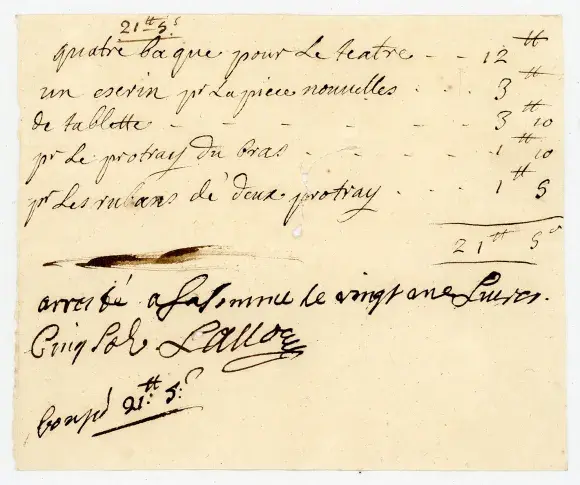 21 ₶ 5 s
quatre bague pour Le teatre - - 12 ₶
un escrin pr La piece nouvelles . . . 3 ₶
de tablette - - - - - - - 3 ₶ 10
pr Le protray du bras - - - - - 1 ₶ 10
pr Les rubans de deux protray - - - 1 ₶ 5
21 ₶ 5 s
arresté a la somme de vingt une Livres
Cinq Sols
bon pr 21 ₶ 5 s